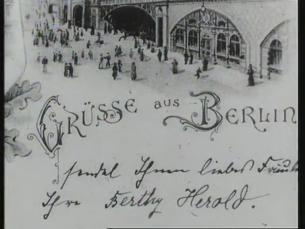 GRÜSSE AUS BERLIN
sendet Ihnen liebes
Ihre Berthy Herold.